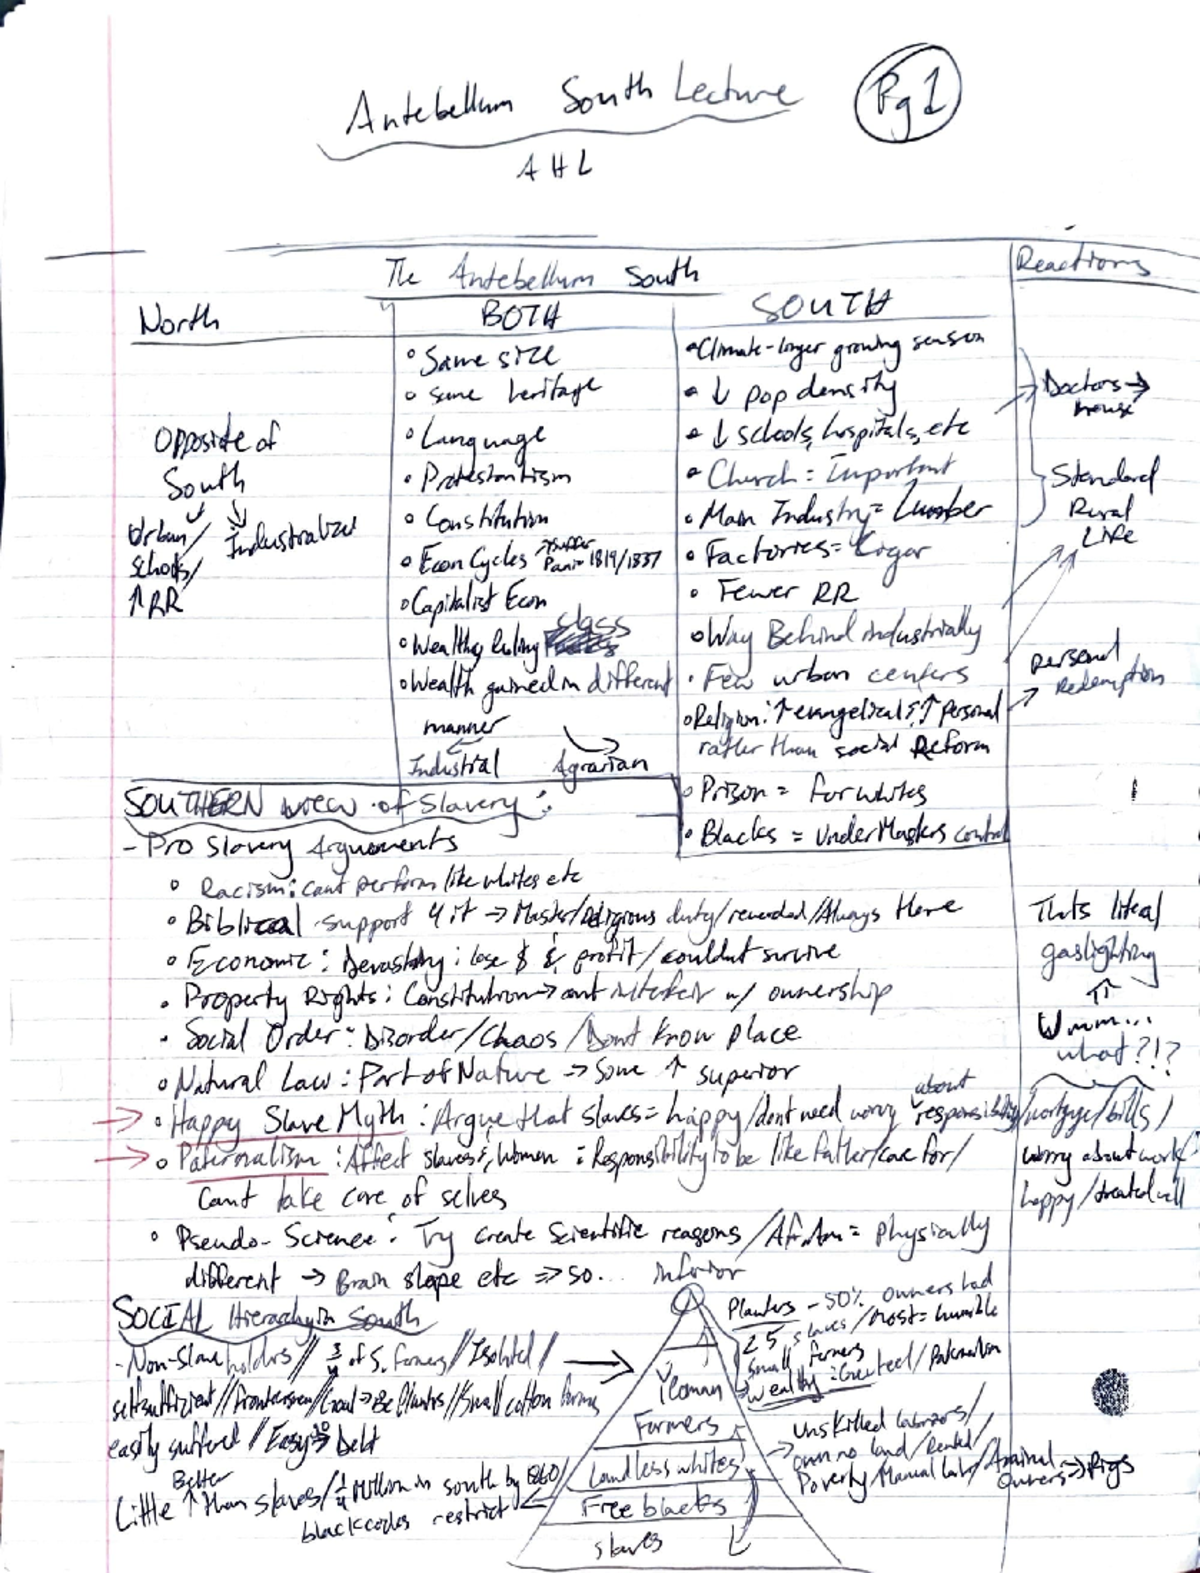 Antebellum South Lecture
Pg 1
AHL
The Antebellum South
Reactions
North
BOTH
SOUTH
Opposite of
South
Urban/
Schools/
↑ RR
Industrialize
• Same size
• same heritage
• Language
• Protestantism
• Constitution
• Econ Cycles → suffer Panic 1819/1837
• Capitalist Econ
• Wealthy Ruling class
• Wealth gained in different
manner
Industrial Agrarian
• Climate - longer growing season
• ↓ pop density
• ↓ schools, hospitals, etc
• Church = Important
• Main Industry = Lumber
• Factories = Cigar
• Fewer RR
• Way Behind industrially
• Few urban centers
• Religion: ↑ evangelical & ↑ personal
rather than social Reform
• Prison = for whites
• Blacks = under Masters control
Doctors →
house
Standard
Rural
Life
personal
Redemption
SOUTHERN view of Slavery:
- Pro Slavery Arguments
• Racism: cant perform like whites etc
• Biblical support 4 it → Master/religious duty/rewarded/Always there
• Economic: Devastating: lose $ & profit/couldnt survive
• Property Rights: Constitution → cant interfeir w/ ownership
• Social Order: Disorder/Chaos/Dont know place
• Natural Law: Part of Nature → Some ↑ superior
• Happy Slave Myth: Argue that slaves = happy/dont need worry about responsibility/mortgage/bills/
worry about work:
happy/treated well
• Paternalism: Affect slaves & women = Responsibility to be like father/care for/
Cant take care of selves
• Pseudo-Science: Try create scientific reasons/Af.Am = physically
different → Brain slope etc => so... inferior
Thats literal
gaslighting
⇑
Wmm...
what?!?
SOCIAL Hierarchy in South
- Non-Slave holders // 3/4 of S. farmers // Isolated/
selfsufficient // frontiersmen/Goal → Be Planters // Small cotton farms
easily suffered // Easy → Debt
Little ↑ Better than slaves/ 1/4 Million in south by 1860/
black codes restrict
Planters - 50% owners had
25 slaves/most = humble
small farmers
wealthy: Greeted/Paternalism
Yeoman
Farmers
Landless whites
Free blacks
slaves
→ Unskilled laborers/
own no land/Rented/
Poverty/Manual Labr/Animal
Owners → Pigs